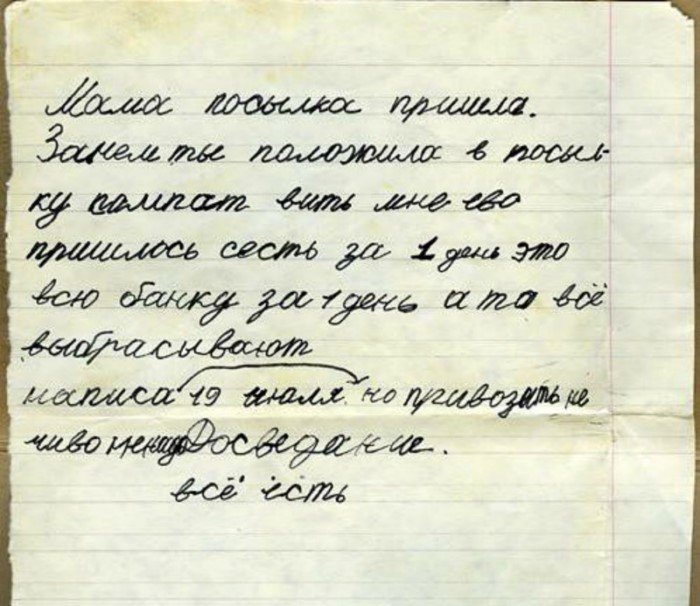 Мама посылка пришла.
Занем ты паложила в посыл-
ку компат вить мне ево
пришлось сесть за 1 день это
всю банку за 1 день а то всё
выбрасывают
написа 19 июля но привозить не
чиво ненадо Досведание.
всё есть